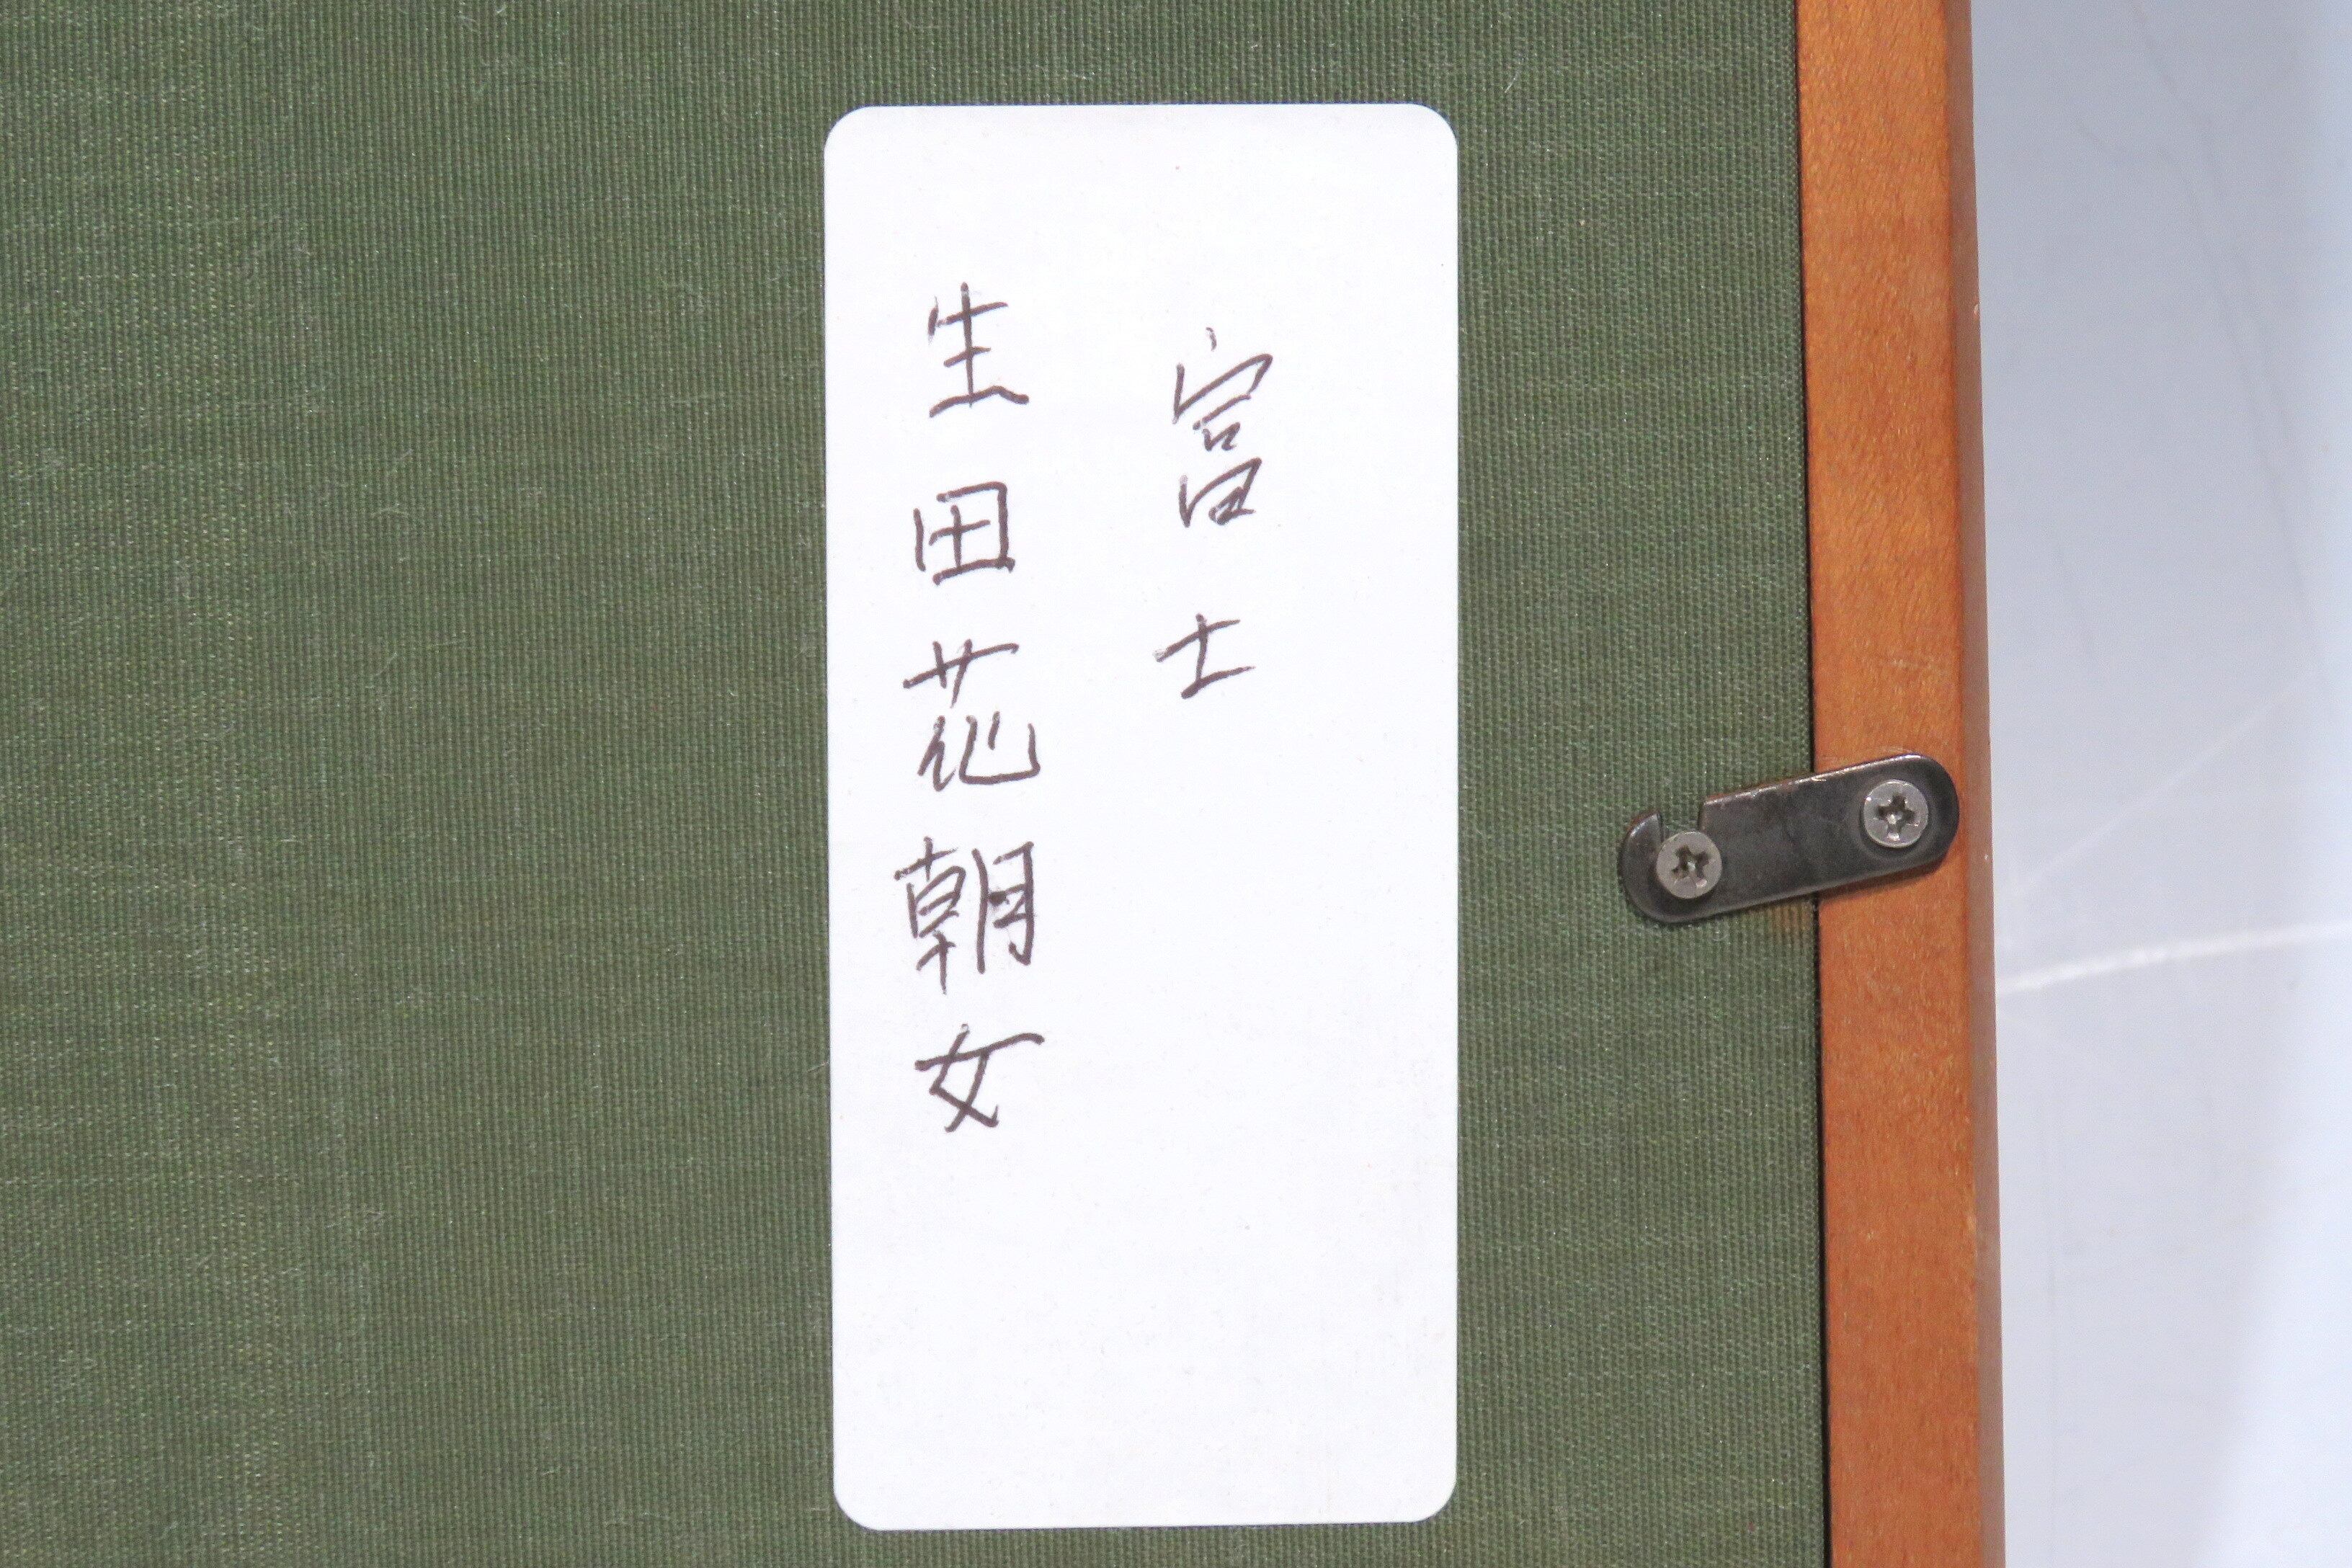 富士
生田花朝女